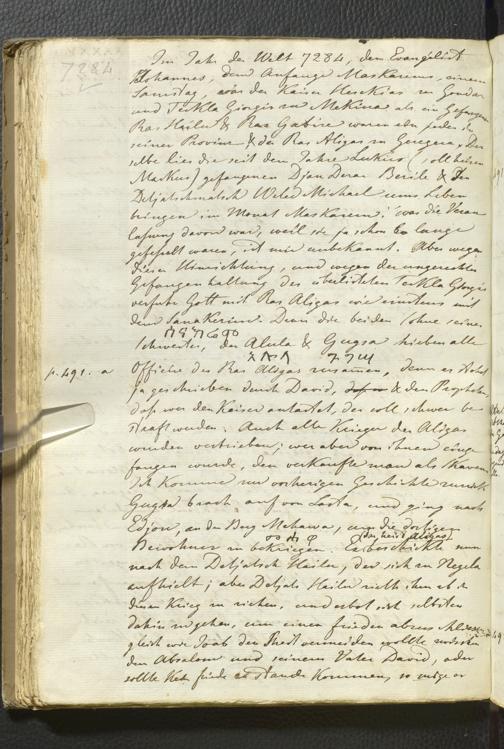 7284
Im Jahr der Welt 7284, den Evangelist
Johannes, dem Anfange Maskarems, einem
Samstag, war der Kaiser Heskias in Gondar
und Tekla Giorgis in Mekina als ein Gefangener
Ras Hailu & Ras Gabire waren ein jeder in
seiner Provinz & der Ras Aligas in Geregera. Der
selbe lies die seit dem Jahre Lukas (soll heisen
Markus) gefangenen Djan Derar Besile & den
Detjatschmatsch Weled Michael ums Leben
bringen im Monat Maskarem; was die Veran
lasung davon war, weil sie ja schon so lange
gefeselt waren, ist mir unbekannt. Aber wegen
dieser Hinrichtung, und wegen der ungerechten
Gefangenhaltung des überlisteten Tekla Giorgis
verfuhr Gott mit Ras Aligas wie einstens mit
dem Sanakerim. Denn die beiden (ohne seine
Schwerter, den Alula & Gugsa hieben alle
p. 491. a
Officire des Ras Aligas zusamen, denn es steht
ja geschrieben durch David, & den Propheten,
das wer den Kaiser antastet, der soll schwer be
straft werden. Auch alle Krieger des Aligas
wurden vertrieben; wer aber von ihnen einge
fangen wurde, den verkaufte man als Sklaven
Ich komme zur vorherigen Geschichte zurück
Gugsa brach auf von Lasta, und ging nach
Edjou, an den Berg Mahawa, um die dortigen
Bewohner zu bekriegen. Er beschickte nun
(das heist Aligas)
nach dem Detjatsch Hailu, der sich in Regela
aufhielt; aber Detjats Hailu rieth ihm ab in
diesen Krieg zu ziehen, und erbot sich selbsten
dahin zu gehen, um einen Frieden abzuschliesen
gleich wie Joab den Streit vermeiden wollte zwischen
dem Absalom und seinem Vater David, oder
sollte kein Friede zu Stande kommen, so möge er